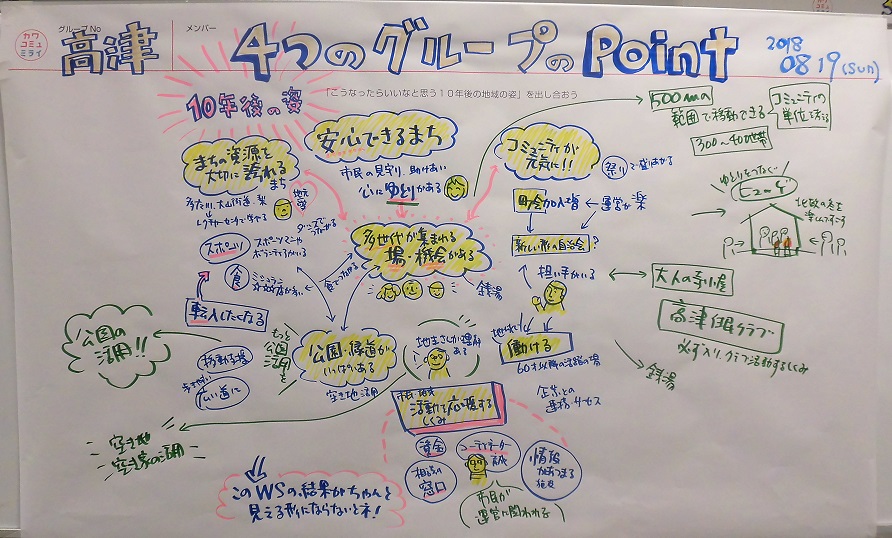 カワ
コミュ
ミライ
グループNo
高津
メンバー
4つのグループのPoint
2018
0819(sun)
10年後の姿
「こうなったらいいなと思う10年後の地域の姿」を出し合おう
まちの資源を
大切に誇れる
まち
安心できるまち
市民の見守り、助けあい
心にゆとりがある
コミュニティが
元気に!!
祭りで盛りあげる
500mの
範囲で移動できる
コミュニティの
単位で考える
300〜400世帯
多世代が集まれる
場・機会がある
銭湯
スポーツ
スポーツマンや
ボランティアがいる
食
食でつながる
転入したくなる
町会加入増
運営が楽
新しい形の自治会?
担い手がいる
地域で
働ける
60才以降の活躍の場
企業との
連携・サービス
公園・緑道が
いっぱいある
空き地活用
もっと
公園
活用を
移動支援
歩きやすい
広い道に
公園の
活用!!
空き地
空き家の活用
地主さんが理解
ある
市民・地域
活動を応援する
しくみ
資金
コーディネーター
育成
相談の
窓口
情報
があつまる
市民が
運営に関われる
このWSの結果がちゃんと
見える形にならないとネ!
ゆとりをつなぐ
大人の寺小屋
高津住民クラブ
必ず入り、クラブ活動するしくみ
銭湯